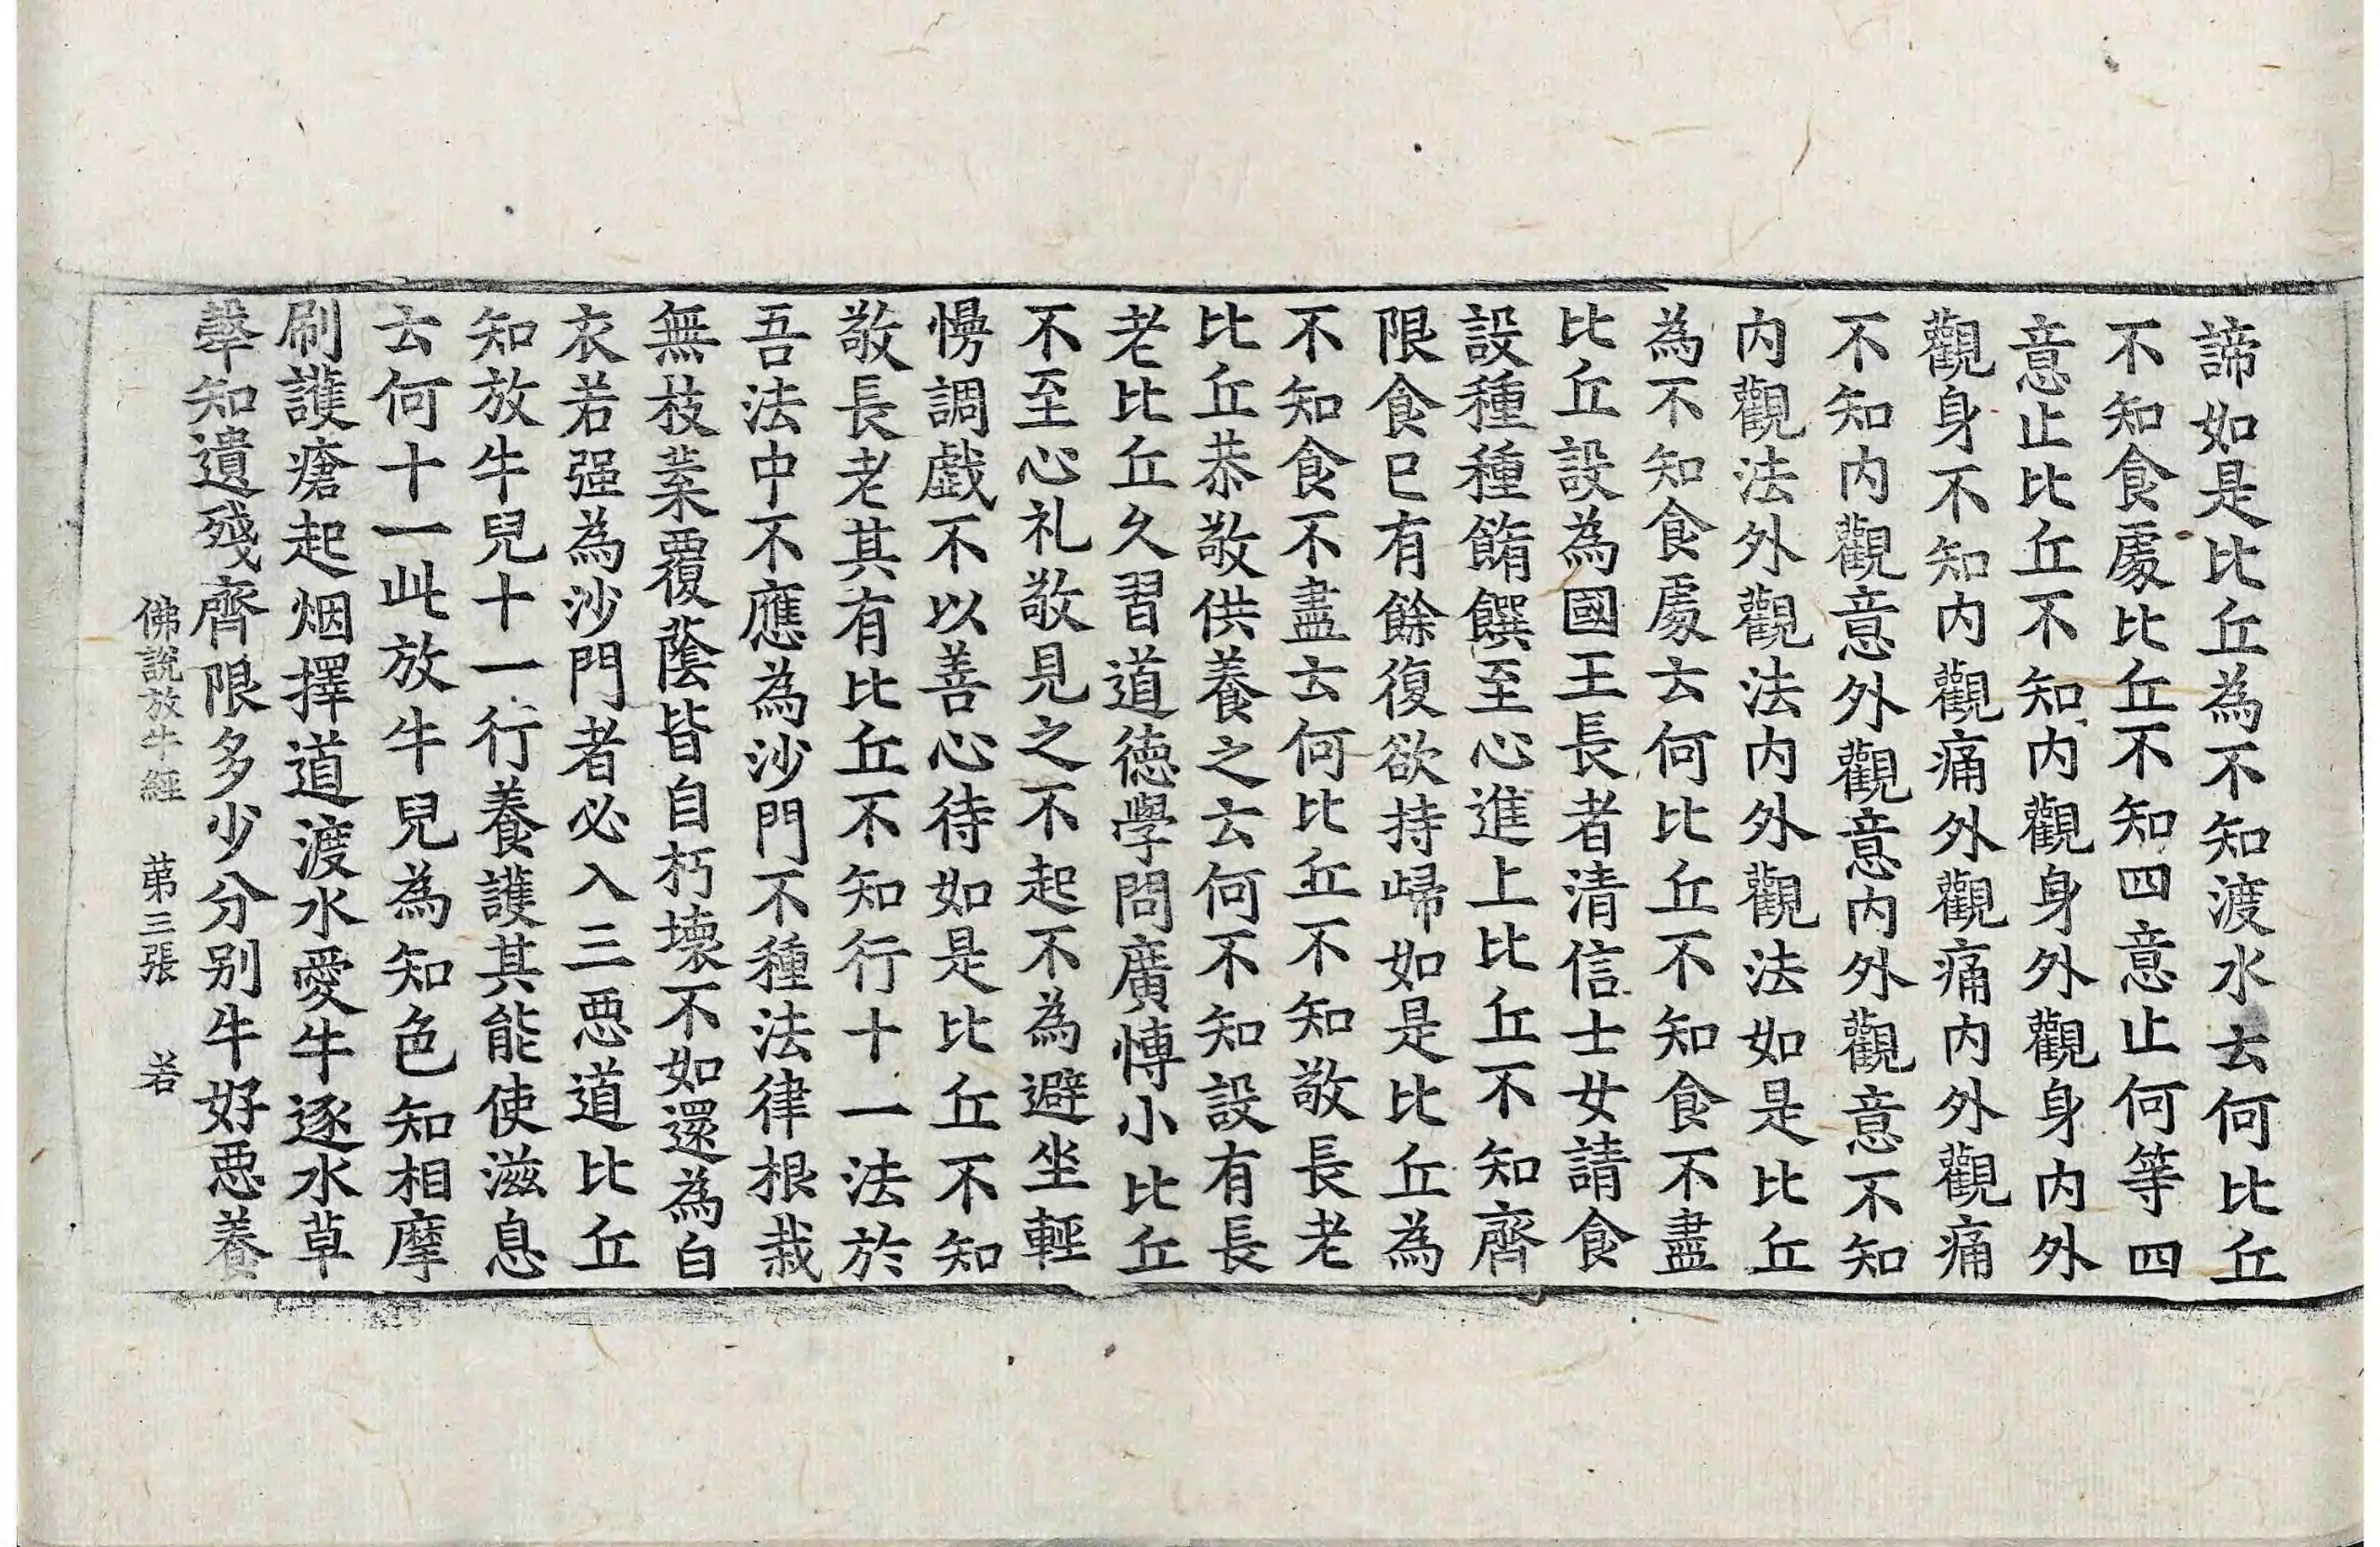 諦如是比丘為不知渡水去何比丘
不知食處比丘不知四意止何等四
意止比丘不知内觀身外觀身内外
觀身不知内觀痛外觀痛内外觀痛
不知内觀意外觀意内外觀意不知
内觀法外觀法内外觀法如是比丘
為不知食處去何比丘不知食不盡
比丘設為國王長者清信士女請食
設種種餚饌至心進上比丘不知齊
限食已有餘復欲持歸如是比丘為
不知食不盡去何比丘不知敬長老
比丘恭敬供養之去何不知設有長
老比丘久習道德學問廣博小比丘
不至心礼敬見之不起不為避坐輕
慢調戲不以善心待如是比丘不知
敬長老其有比丘不知行十一法於
吾法中不應為沙門不種法律根栽
無枝葉覆蔭皆自朽壞不如還為白
衣若强為沙門者必入三惡道比丘
知放牛兒十一行養護其能使滋息
去何十一此放牛兒為知色知相摩
刷護瘡起烟擇道渡水愛牛逐水草
𤛗知遺殘齊限多少分别牛好惡養
佛說放牛經 苐三張 若